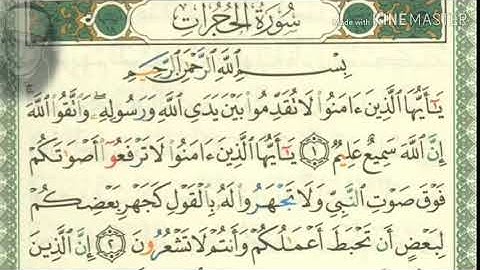 سُورَةُ الْحُجُرَاتِ
Made with KINEMASTER
بِسْمِ ٱللَّهِ ٱلرَّحْمَٰنِ ٱلرَّحِيمِ
يَٰٓأَيُّهَا ٱلَّذِينَ ءَامَنُوا۟ لَا تُقَدِّمُوا۟ بَيْنَ يَدَىِ ٱللَّهِ وَرَسُولِهِۦ ۖ وَٱتَّقُوا۟ ٱللَّهَ ۚ
إِنَّ ٱللَّهَ سَمِيعٌ عَلِيمٌ ١ يَٰٓأَيُّهَا ٱلَّذِينَ ءَامَنُوا۟ لَا تَرْفَعُوٓا۟ أَصْوَٰتَكُمْ
فَوْقَ صَوْتِ ٱلنَّبِىِّ وَلَا تَجْهَرُوا۟ لَهُۥ بِٱلْقَوْلِ كَجَهْرِ بَعْضِكُمْ
لِبَعْضٍ أَن تَحْبَطَ أَعْمَٰلُكُمْ وَأَنتُمْ لَا تَشْعُرُونَ ٢ إِنَّ ٱلَّذِينَ